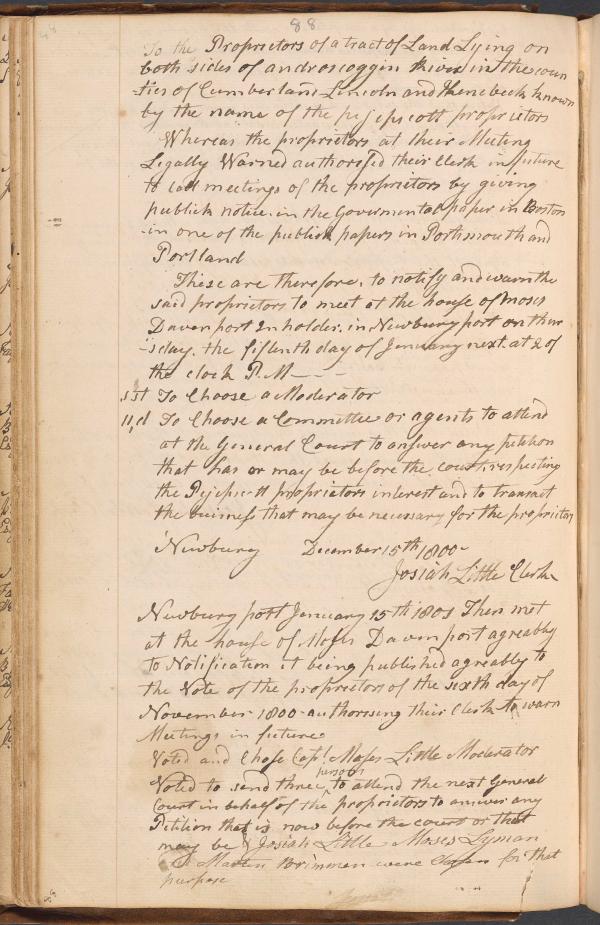 88
To the Proprietors of a tract of Land Lying on
both sides of androscoggin River in the coun
ties of Cumberland Lincoln and Kenebeck known
by the name of the pejepscott proprietors
Whereas the proprietors at their Meeting
Legally Warned authorised their Clerk in future
to call meetings of the proprietors by giving
publick notice in the Govermental paper in Boston
in one of the publick papers in Portsmouth and
Portland
These are therefore, to notify and warn the
said proprietors to meet at the house of Moses
Davenport Inholder in Newburyport on thur
sday the fifteenth day of January next at 2 of
the clock P.M
1st To Choose a Moderator
11,d To Choose a Committee or agents to attend
at the General Court to answer any petition
that has or may be before the court, respecting
the Pejepscott proprietors interest and to transact
the buisness that may be necessary for the proprietors
Newbury December 15th 1800
Josiah Little Clerk
Newbury port January 15th 1801 Then met
at the house of Moses Davenport agreably
to Notification it being published agreably to
the Vote of the proprietors of the sixth day of
November 1800 authorising their Clerk to warn
Meetings in future
Voted and Chose Capt Moses Little Moderator
persons
Voted to send three to attend the next General
Court in behalf of the proprietors to answer any
Petition that is now before the court or that
may be & Josiah Little Moses Lyman
Martin Brimmer were chosen for that
purpose